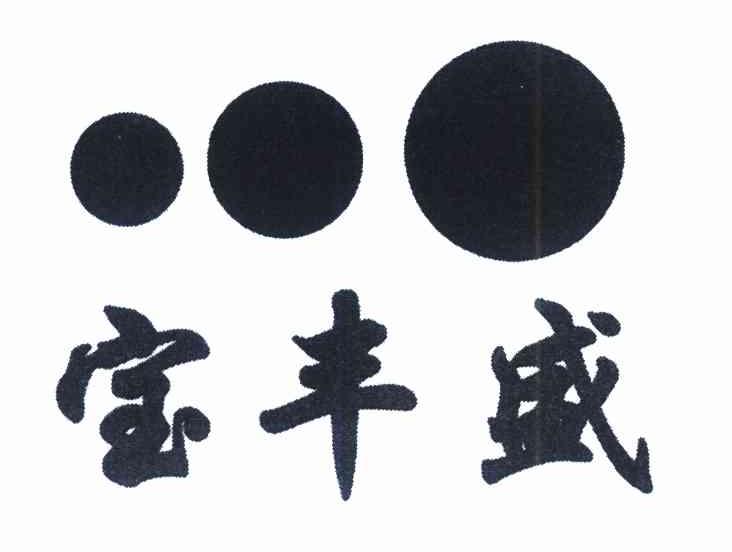 宝丰盛